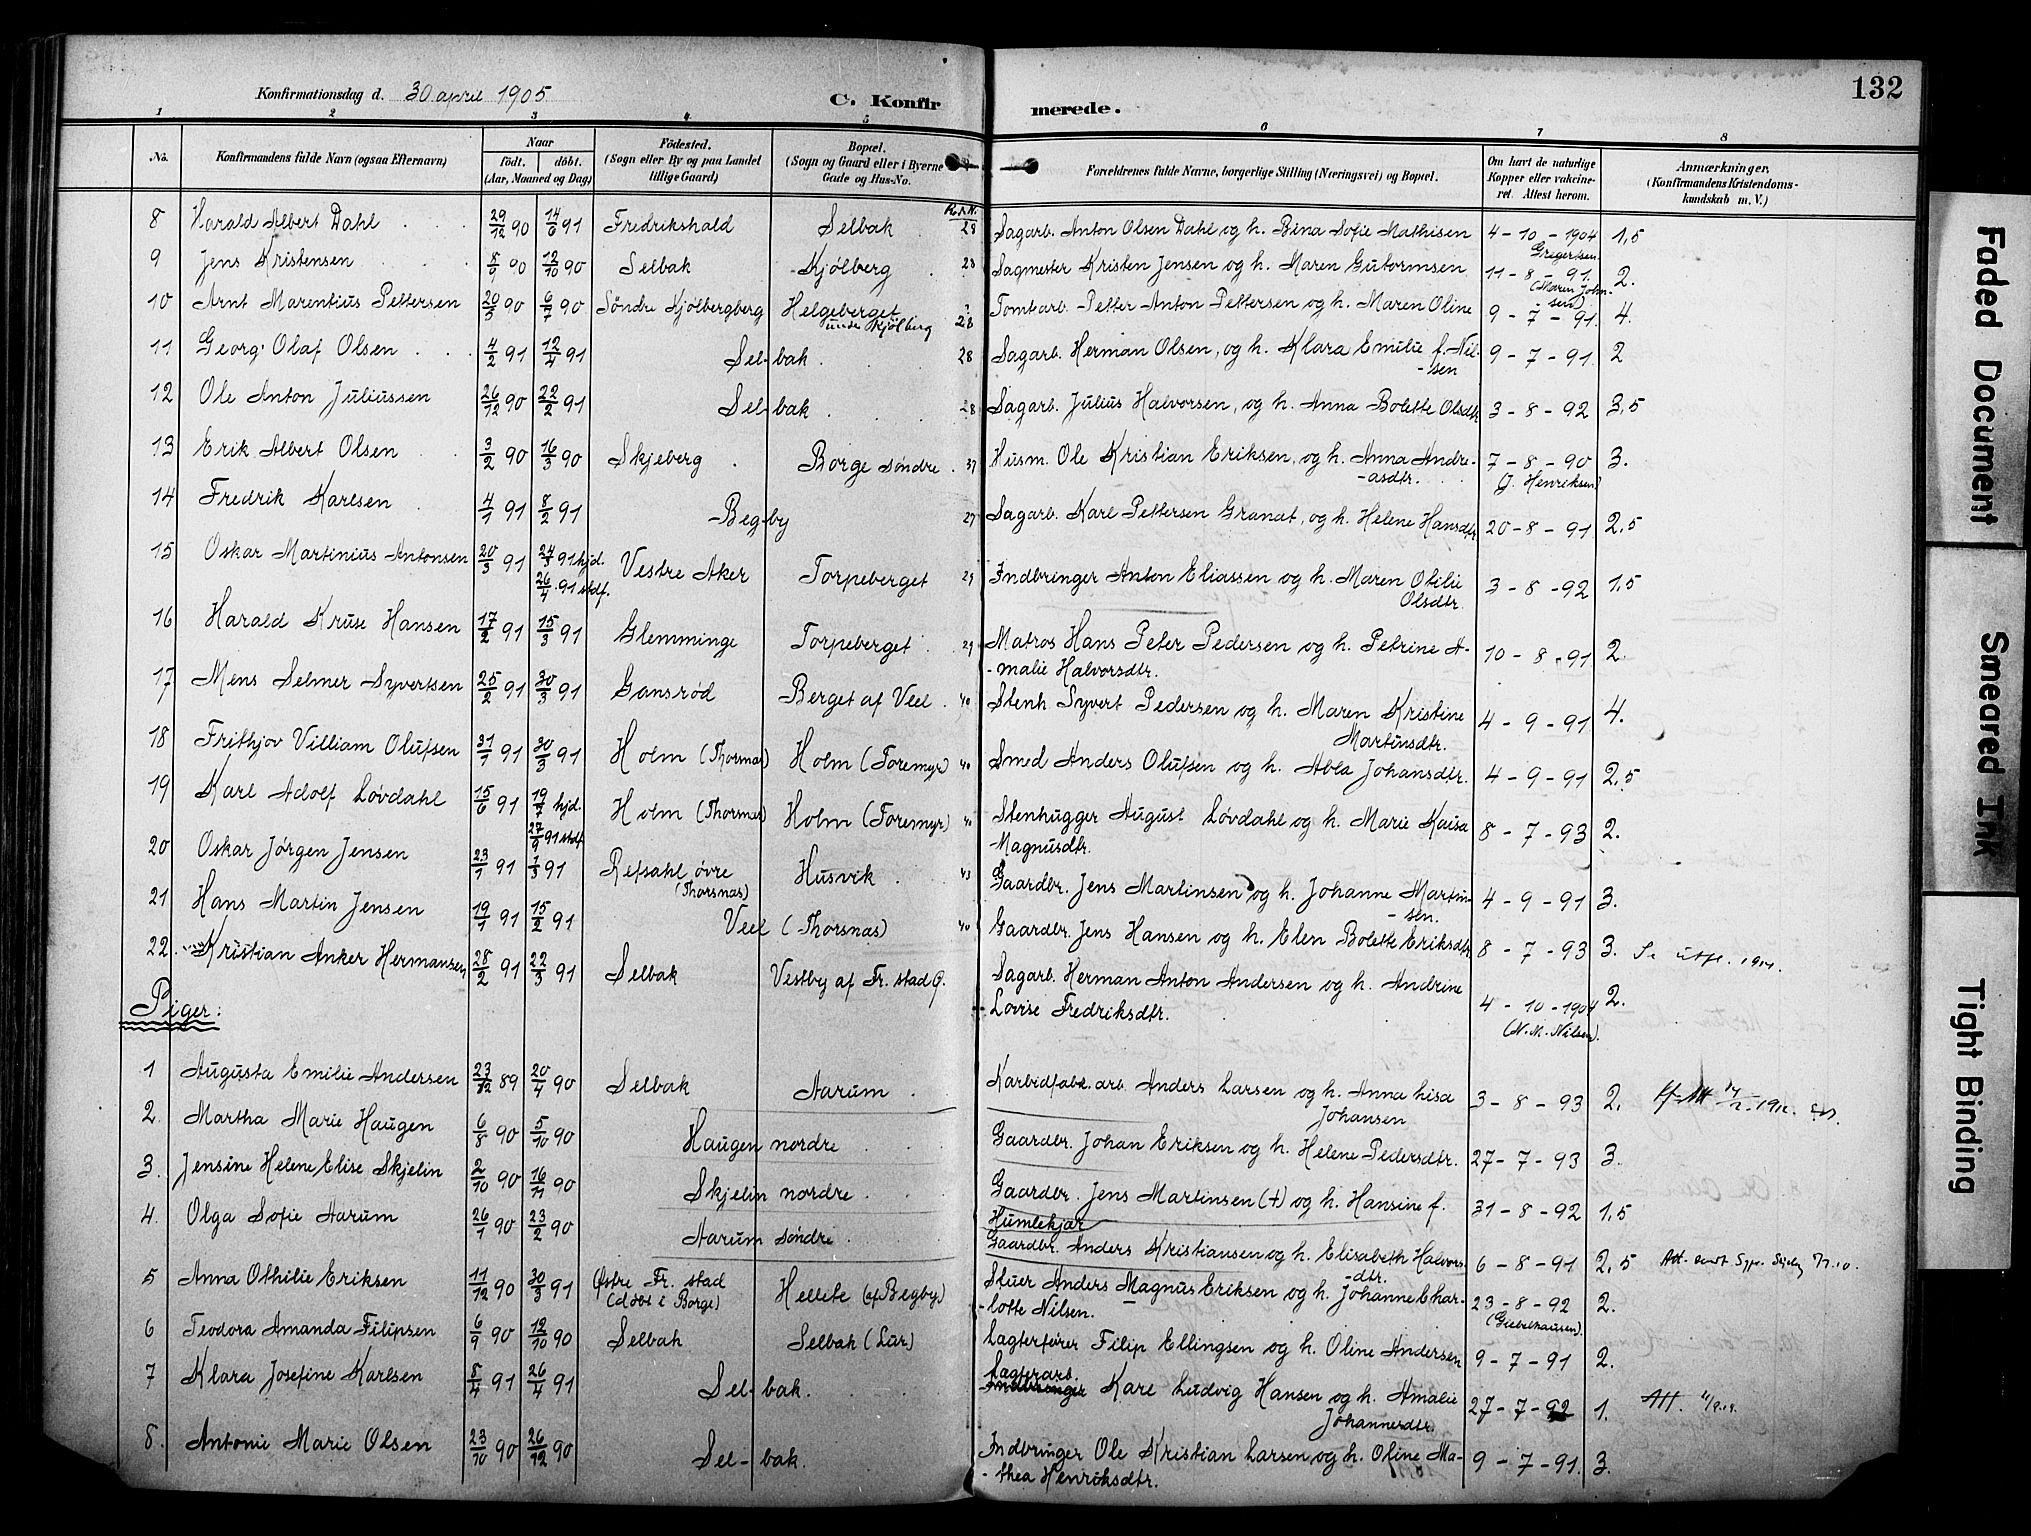 132
Konfirmationsdag d. 30 april 1905.
C. Konfirmerede.
1 2 3 4 5 6 7 8
No. Konfirmandens fulde Navn (ogsaa Efternavn) Naar födt. döbt. (Aar, Maaned og Dag) Födested. (Sogn eller By og paa Landet tillige Gaard) Bopæl. (Sogn og Gaard eller i Byerne Gade og Hus-No. Forældrenes fulde Navne, borgerlige Stilling (Næringsvei) og Bopæl. Om havt de naturlige Kopper eller vakcineret. Attest herom. Anmærkninger, (Konfirmandens Kristendomskundskab m. V.)
8 Harald Albert Dahl 29/12 90 14/6 91 Fredrikshald Selbak 28 Sagarb. Anton Olsen Dahl og h. Bina Sofie Mathisen 4-10-1904 Gregertsen 1,5
9 Jens Kristensen 8/9 90 12/10 90 Selbak Kjölberg 28 Sagmester Kristen Jensen og h. Maren Gutormsen 11-8-91. (Maren Johnsen) 2.
10 Arnt Marentius Pettersen 20/5 90 6/7 90 Söndre Kjölbergberg Helgeberget under Kjölberg 28 Tomtarb. Petter Anton Pettersen og h. Maren Oline 9-7-91. 4.
11 Georg Olaf Olsen 4/2 91 12/4 91 Sel-bak. 28 Sagarb. Herman Olsen, og h. Klara Emilie f. Nil-
-sen 9-7-91. 2
12 Ole Anton Juliussen 26/12 90 22/2 91 Sel-bak. 28 Sagarb. Julius Halvorsen, og h. Anna Bolette Olsdtr. 3-8-92 3,5
13 Erik Albert Olsen 3/2 90 16/3 90 Skjeberg Borge söndre. 37 Husm. Ole Kristian Eriksen, og h. Anna Andre-
-asdtr. 7-8-90 (J. Henriksen) 3.
14 Fredrik Karlsen 4/1 91 8/2 91 Begby 27 Sagarb. Karl Pettersen Granat, og h. Helene Hansdtr. 20-8-91 2,5
15 Oskar Martinius Antonsen 20/3 91 24/3 91 hjd. 26/4 91 stdf. Vestre Aker Torpeberget 29 Indbringer Anton Eliassen og h. Maren Otilie
Olsdtr. 3-8-92 1,5
16 Harald Kruse Hansen 17/2 91 15/3 91 Glemminge Torpeberget 29 Matros Hans Peter Pedersen og h. Petrine A-
-malie Halvorsdtr. 10-8-91 2.
17 Mens Selmer Syvertsen 25/2 91 30/3 91 Gansröd Berget af Veel. 40 Stenh. Syvert Pedersen og h. Maren Kristine
Martinsdtr. 4-9-91 4.
18 Frithjov Villiam Olufsen 31/1 91 30/3 91 Holm (Thornæs) Holm (Foremyr) 40 Smed Anders Olufsen og h. Abla Johansdtr. 4-9-91 2,5
19 Karl Adolf Lövdahl 15/6 91 19/7 hjd. 27/9 91 stdf Holm (Thorsnæs) Holm (Foremyr) 40 Stenhugger August Lövdahl og h. Marie Kaisa
Magnusdtr. 8-7-93 2.
20 Oskar Jörgen Jensen 23/1 91 1/3 91 Refsahl övre (Thorsnæs) Husvik 43 Gaardbr. Jens Martinsen og h. Johanne Martin-
-sen. 4-9-91 3.
21 Hans Martin Jensen 19/1 91 15/2 91 Veel (Thorsnæs) 40 Gaardbr. Jens Hansen og h. Elen Bolette Eriksdtr 8-7-93 3.
22. Kristian Anker Hermansen 28/2 91 22/3 91 Selbak Vestby af Fr. stad Sagarb. Herman Anton Andersen og h. Andrine
-Lovise Fredriksdtr. 4-10-1904 (N. M. Nilsen). 2.
Piger:
1 Augusta Emilie Andersen 23/12 89 20/4 90 Selbak Aarum. Karbidfabr. arb. Anders Larsen og h. Anna Lisa
Johansen 3-8-93 2.
2. Martha Marie Haugen 6/8 90 5/10 90 Haugen nordre Gaardbr. Johan Eriksen og h. Helene Pedersdtr. 27-7-93 3.
3. Jensine Helene Elise Skjelin 2/10 90 16/11 90 Skjelin nordre Gaardbr. Jens Martinsen (+) og h. Hansine f.
Humlekjær 31-8-92 1,5
4. Olga Sofie Aarum 26/1 90 23/2 90 Aarum söndre Gaardbr. Anders Kristiansen og h. Elisabeth Halvors-
-dtr. 6-8-91 2,5
5 Anna Othilie Eriksen 11/12 90 30/3 91 Østre Fr. stad (döbt i Borge) Hellete (af Begby) Stuer Anders Magnus Eriksen og h. Johanne Char-
-lotte Nilsen. 23-8-92 (Giebelhausen). 2.
6 Teodora Amanda Filipsen 6/9 90 12/10 90 Selbak Selbak (Lur) Lagterförer Filip Ellingsen og h. Oline Andersen 9-7-91 2.
7 Klara Josefine Karlsen 8/4 91 26/4 91 Sel-bak. Lagterarb. Indbringer Karl Ludvig Hansen og h. Amalie
Johannesdtr. 27-7-92 1. Att.
8. Antonie Marie Olsen 23/10 90 26/12 90 Sel-bak. Indbringer Ole Kristian Larsen og h. Oline Ma-
-thea Henriksdtr. 9-7-91. 3.
Faded Document
Smeared Ink
Tight Binding